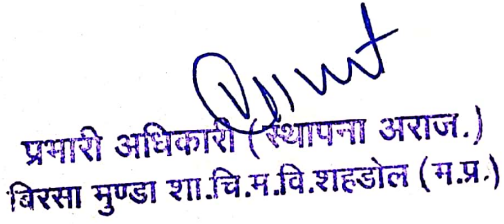 प्रभारी अधिकारी (स्थापना अराज.)
बिरसा मुण्डा शा.चि.म.वि.शहडोल (म.प्र.)